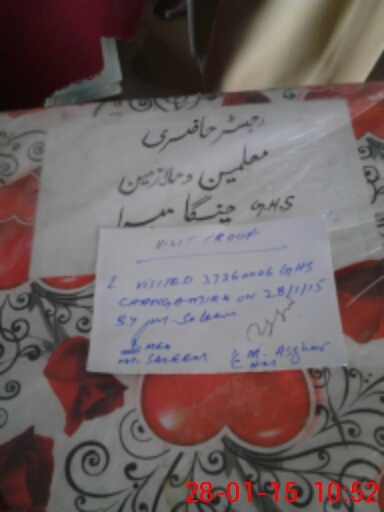 رجسٹر حاضری
معلمین و ملازمین
GHS چینگا میرا
VISIT PROOF
I VISITED 37360006 GHS
CHANGA MIRA ON 28/1/15
BY M. Saleem
MEA
M. SALEEM
M. Asghar
28-01-15 10:52